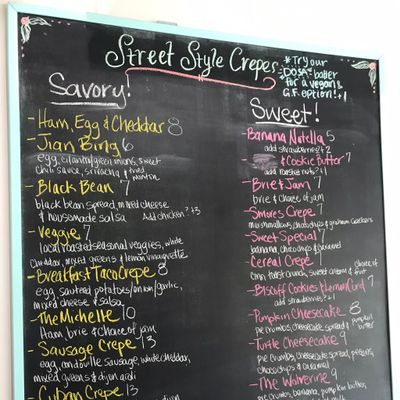 Street Style Crepes
*Try our
"DOSA" batter
for a vegan &
G.F. option! +1
Savory!
- Ham, Egg & Cheddar 8
- Jian Bing 6
egg, cilantro/green onions, sweet
chili sauce, sriracha & fried
wonton
- Black Bean 7
black bean spread, mixed cheese
& housemade salsa Add chicken? +3
- Veggie 7
local roasted seasonal veggies, white
cheddar, mixed greens & lemon vinaigrette
- Breakfast Taco Crepe 8
egg, sauteed potatoes/onion/garlic,
mixed cheese & salsa
- The Michelle 10
Ham, brie & choice of jam
- Sausage Crepe 13
egg, andouille sausage, white cheddar,
mixed greens & dijon aioli
- Cuban Crepe 13
dijon
Sweet!
- Banana Nutella 5
add strawberries? +2
- & Cookie Butter 7
add roasted nuts? +1
- Brie & Jam 7
brie & choice of jam
- S'mores Crepe 7
marshmallows, choco chips & graham crackers
- Sweet Special 7
banana, choco chips & caramel
- Cereal Crepe 7
cinn. toast crunch, sweet cream & fruit
choice of
- Biscoff Cookies & Lemon Curd 7
add strawberries? +1
- Pumpkin Cheesecake 8
pie crumbs, cheesecake spread & pumpkin
butter
- Turtle Cheesecake 9
pie crumbs, cheesecake spread, pecans,
choco chips & caramel
- The Wolverine 9
pie crumbs, banana, pumpkin butter,